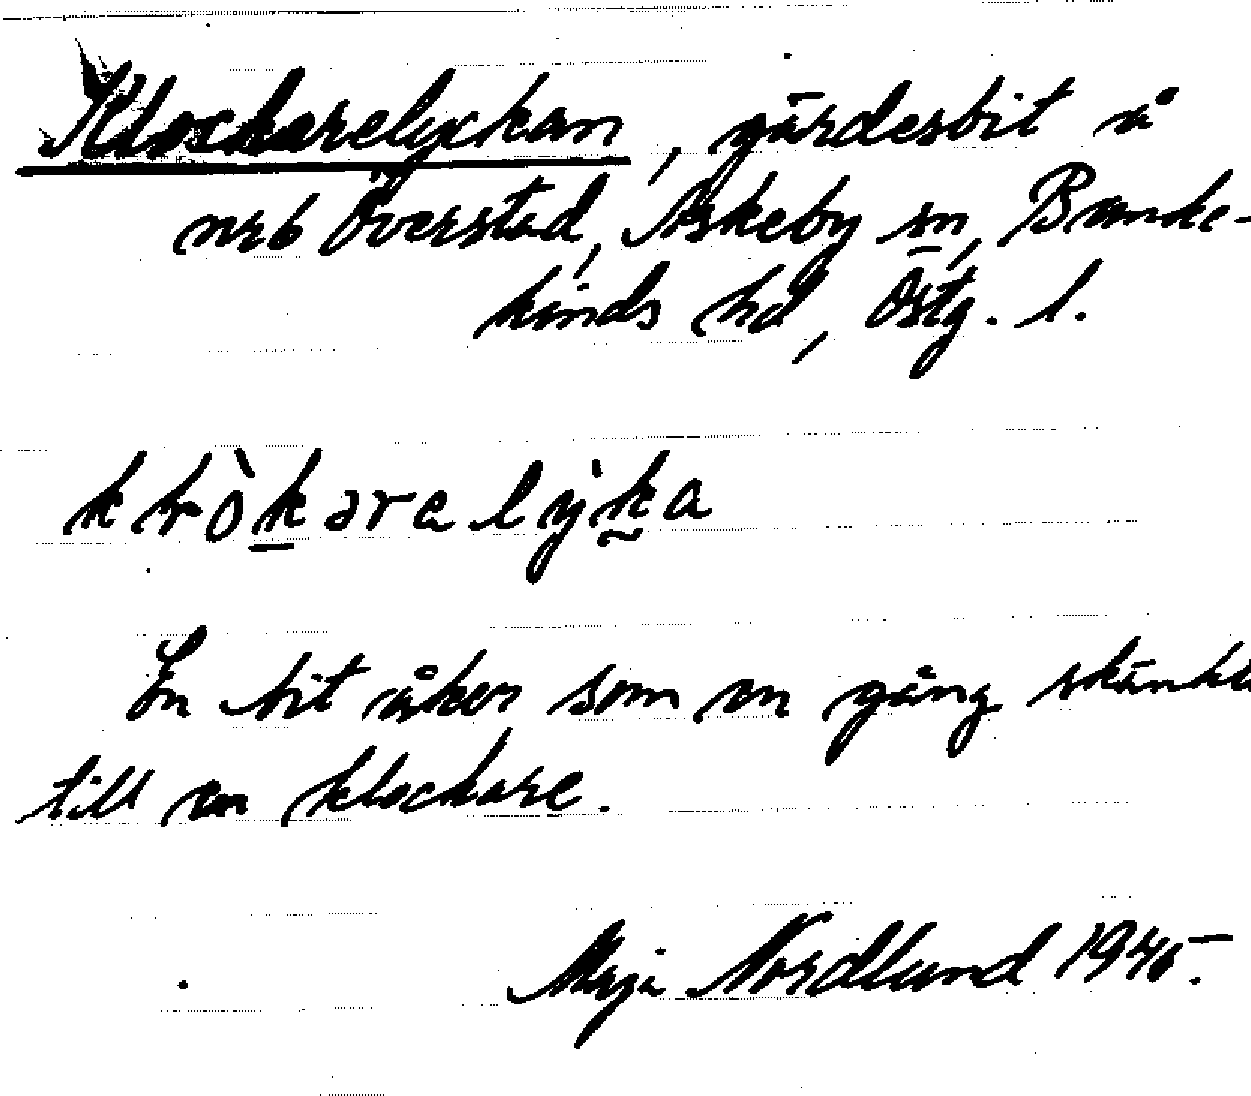 Klockarelyckan, gärdesbit å
nr 6 Överstad, Askeby sn, Bande-
kinds hd, Östg. l.
En bit åker som en gång skänkts
till en klockare.
Maja Nordlund 1945.